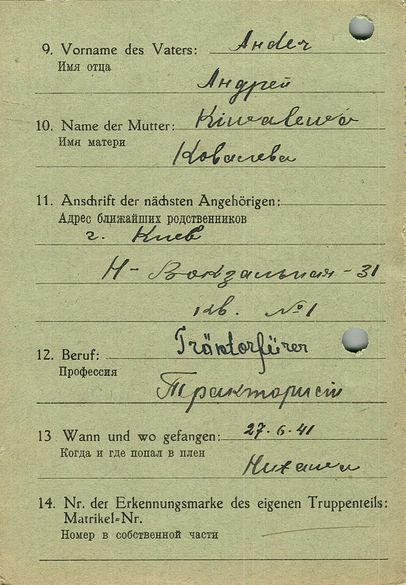 9. Vorname des Vaters: Ander
Имя отца
Андрей
10. Name der Mutter:
Имя матери
Ковалева
11. Anschrift der nächsten Angehörigen:
Адрес ближайших родственников
г. Киев
Н-Вокзальная - 31
кв. №1
12. Beruf: Träktorfürer
Профессия
Тракторист
13 Wann und wo gefangen: 27.6.41
Когда и где попал в плен
14. Nr. der Erkennungsmarke des eigenen Truppenteils:
Matrikel-Nr.
Номер в собственной части